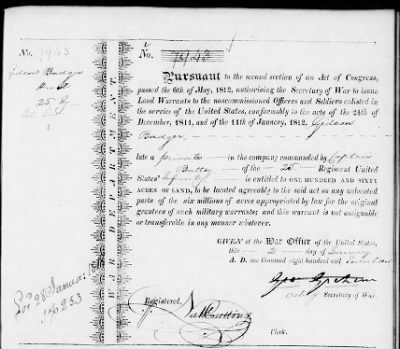 No. 7943
No. 7943
Gideon Badger
25
2
Pursuant to the second section of an Act of Congress,
passed the 6th of May, 1812, authorising the Secretary of War to issue
Land Warrants to the noncommissioned Officers and Soldiers enlisted in
the service of the United States, conformably to the acts of the 24th of
December, 1811, and of the 11th of January, 1812, Gideon
Badger,
late a private in the company commanded by Captain
of the 25 Regiment United
States' Infantry
is entitled to ONE HUNDRED AND SIXTY
ACRES OF LAND, to be located agreeably to the said act on any unlocated
part of the six millions of acres appropriated by law for the original
grantees of such military warrants; and this warrant is not assignable
or transferable in any manner whatever.
WAR DEPARTMENT.
GIVEN at the War Office of the United States,
this 2 day of
A. D. one thousand eight hundred and
Geo: Graham
Secretary of War.
Loc 28
253
Registered.
Clerk.